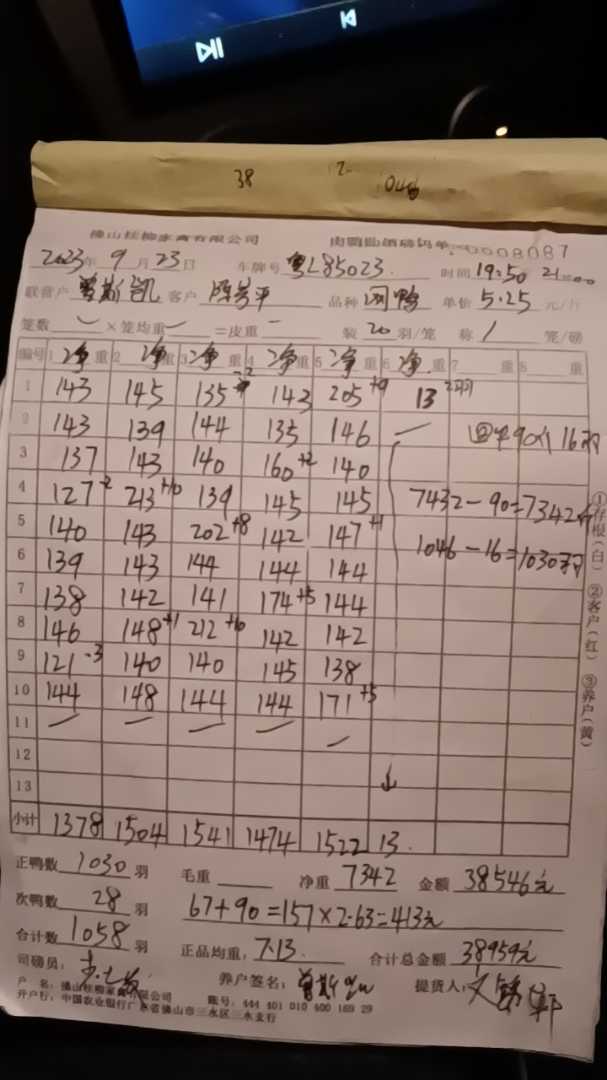 38 12- 1046
佛山桂柳家禽有限公司 肉鸭出销磅码单 0008087
2023年 9月 23日 车牌号 粤L85023 时间 19:50 21:00
联营户 曾斯凯 客户 陈芳平 品种 网鸭 单价 5.25 元/斤
笼数 — ×笼均重 — =皮重 — 装 20 羽/笼 称 1 笼/磅
编号 1 净重 2 净重 3 净重 4 净重 5 净重 6 净重 7 重 8 重
1 143 145 135-2 143 205+9 13 2羽
2 143 139 144 135 146 — 90斤 16羽
3 137 143 140 160+2 140
4 127-2 213+10 139 145 145 7432-90=7342斤
5 140 143 202+8 142 147+1 1046-16=1030羽
6 139 143 144 144 144
7 138 142 141 174+5 144
8 146 148+1 212+10 142 142
9 121-3 140 140 145 138
10 144 148 144 144 171+5
11 — — — — —
12
13
小计 1378 1504 1541 1474 1522 13.
正鸭数 1030 羽 毛重 净重 7342 金额 38546元
次鸭数 28 羽 67+90=157×2.63=413元
合计数 1058 羽 正品均重: 7.13 合计总金额 38959元
司磅员: 养户签名: 曾斯凯 提货人:
户 名: 佛山桂柳家禽有限公司 账号: 444 401 010 400 169 29
开户行: 中国农业银行广东省佛山市三水区三水支行
①存根(白) ②客户(红) ③养户(黄)